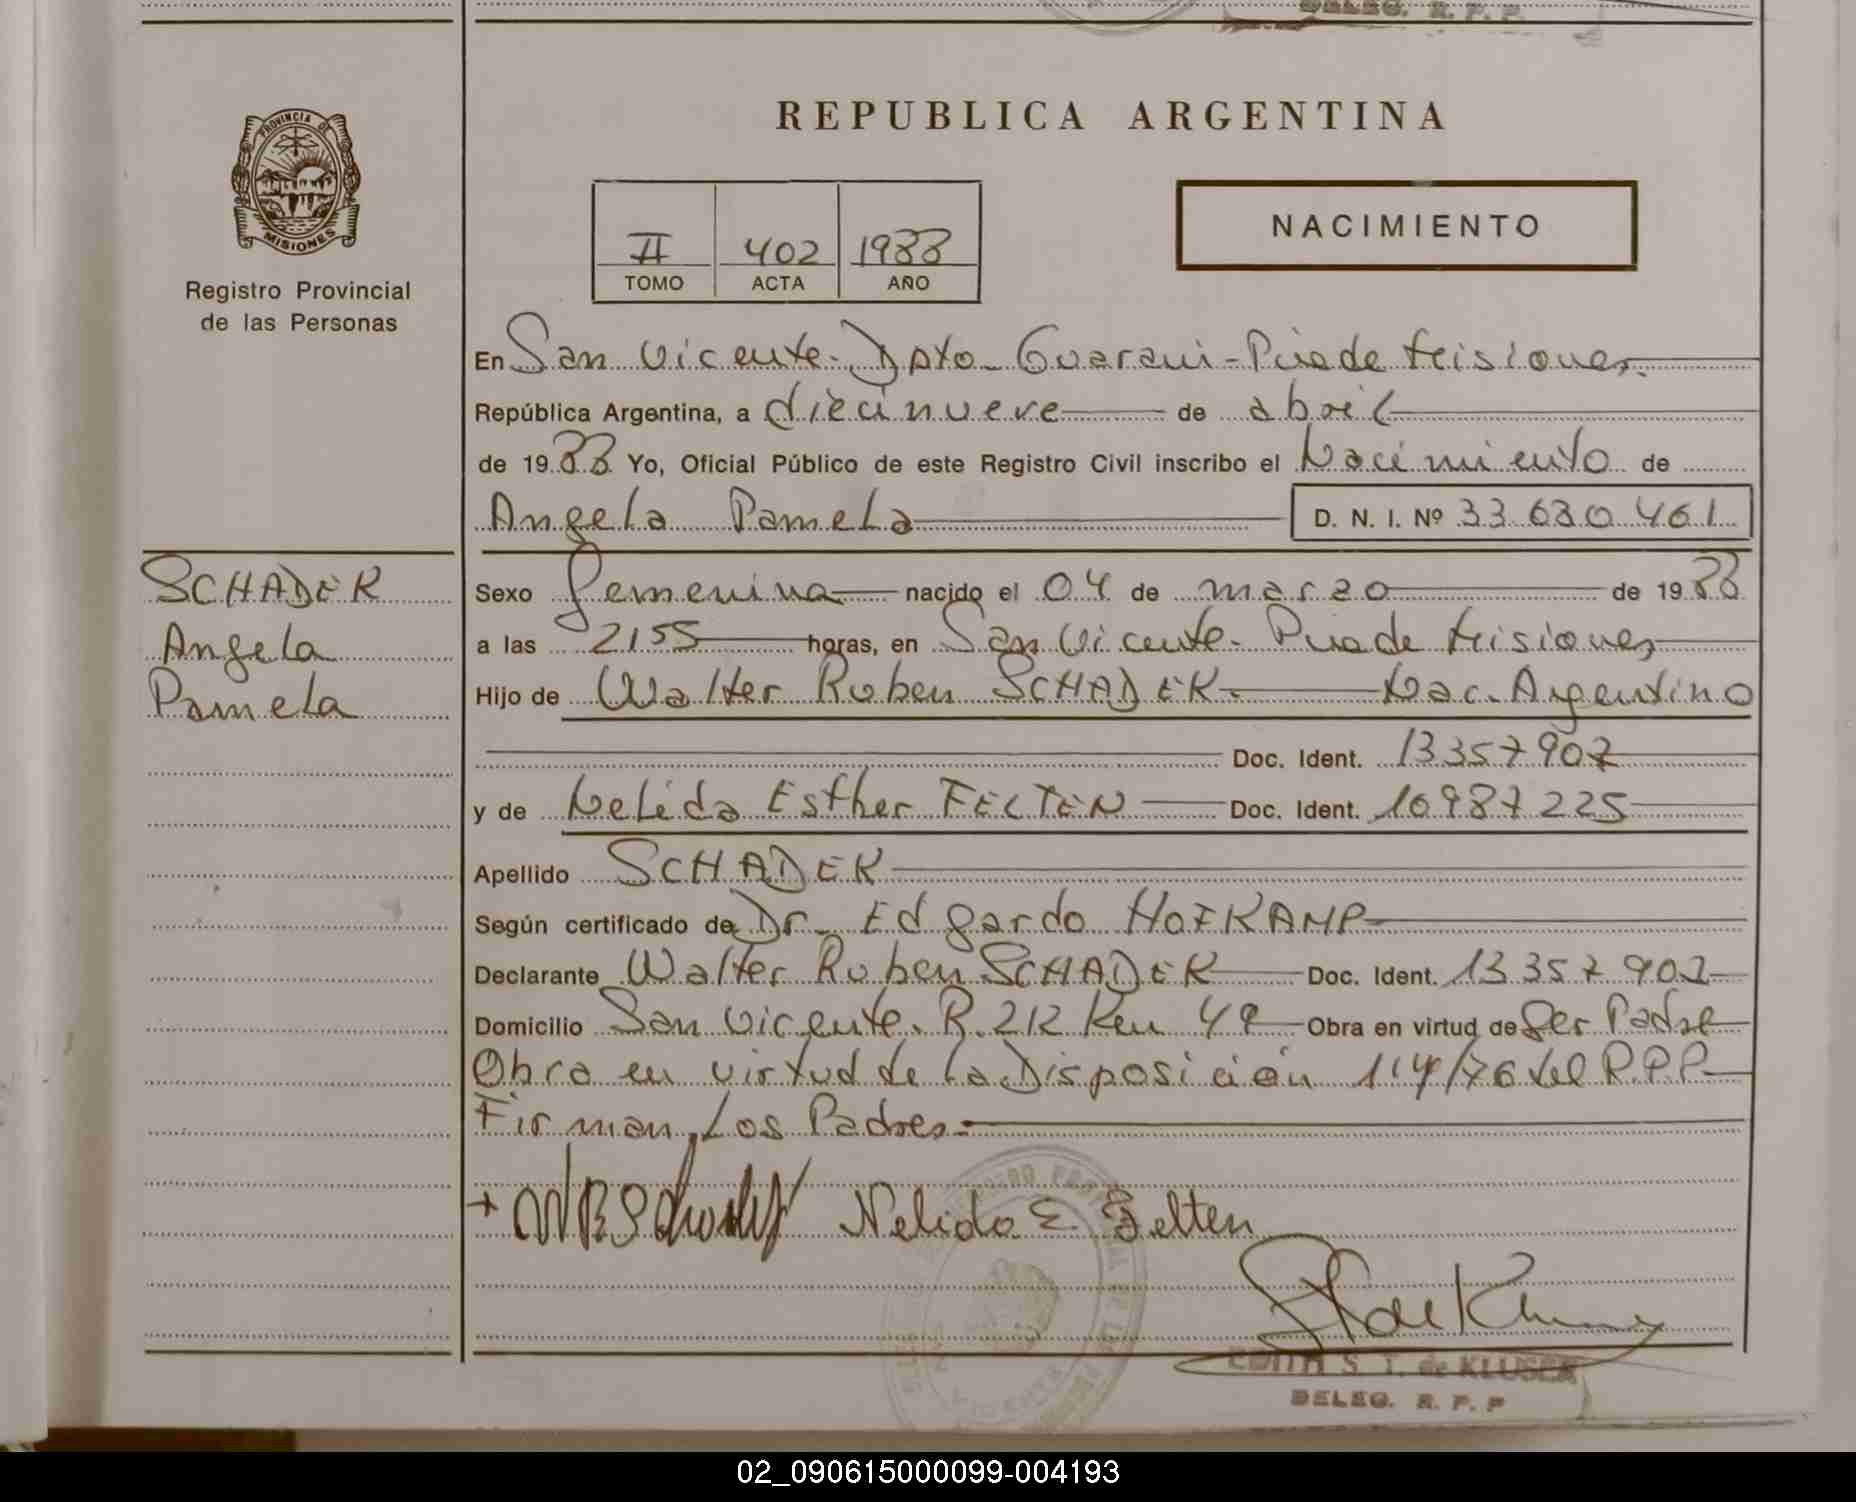 DELEG. R. P. P.
PROVINCIA DE
MISIONES
Registro Provincial
de las Personas
REPUBLICA ARGENTINA
II 402 1988
TOMO ACTA AÑO
NACIMIENTO
En San Vicente - Dpto - Guarani - Pciade Misiones.
República Argentina, a diecinueve de abril
de 1988 Yo, Oficial Público de este Registro Civil inscribo el Nacimiento de
Angela Pamela D. N. I. Nº 33 680 461
SCHADER
Angela
Pamela
Sexo femenina nacido el 04 de marzo de 1988
a las 2155 horas, en San Vicente - Pciade Misiones
Hijo de Walter Ruben SCHADER - Nac. Argentino
Doc. Ident. 13 357 907
y de Nelida Esther FELTEN Doc. Ident. 10987225
Apellido SCHADER
Según certificado de Dr. Edgardo HOFKAMP
Declarante Walter Ruben SCHADER Doc. Ident. 13 357 907
Domicilio San Vicente. R. 212 Km 49 Obra en virtud de Ser Padre
Obra en virtud de la Disposición 114/76 del R.P.P.
Firman Los Padres.-
Nelida E Felten
EDITH S. T. de KLUSER
DELEG. R. P. P
02_090615000099-004193